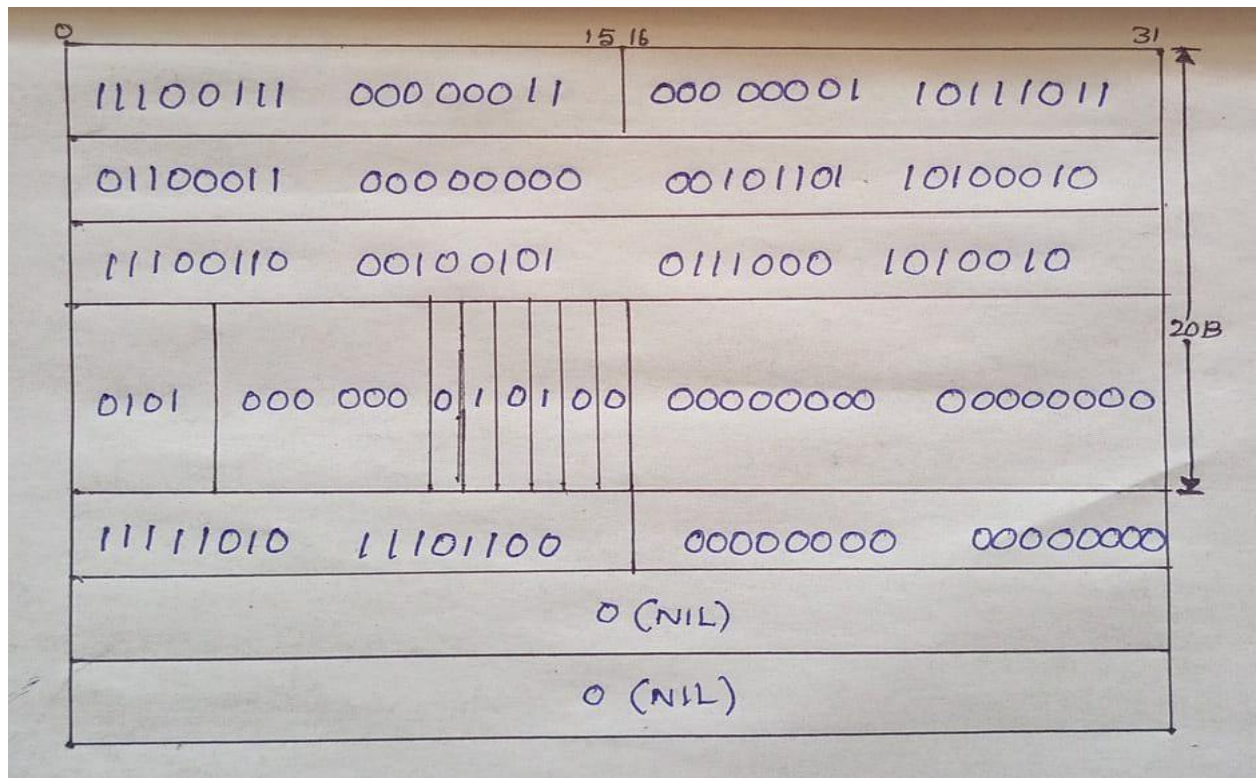 0 15 16 31
11100111 00000011 00000001 10111011
01100011 00000000 00101101 10100010
11100110 00100101 0111000 1010010
0101 000 000 0 1 0 1 0 0 00000000 00000000
20B
11111010 11101100 00000000 00000000
0 (NIL)
0 (NIL)